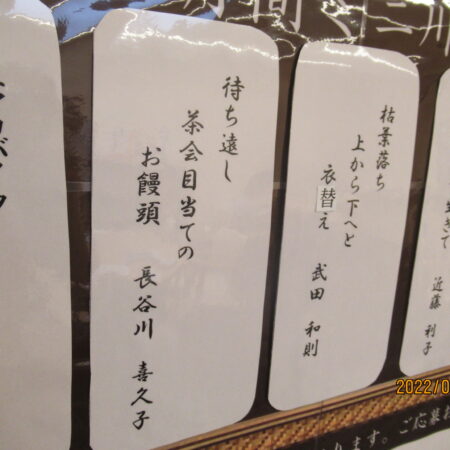 待ち遠し
茶会目当ての
お饅頭 長谷川 喜久子
枯葉落ち
上から下へと
衣替え 武田 和則
生きて 近藤 利子
ります。ご応募
2022/0